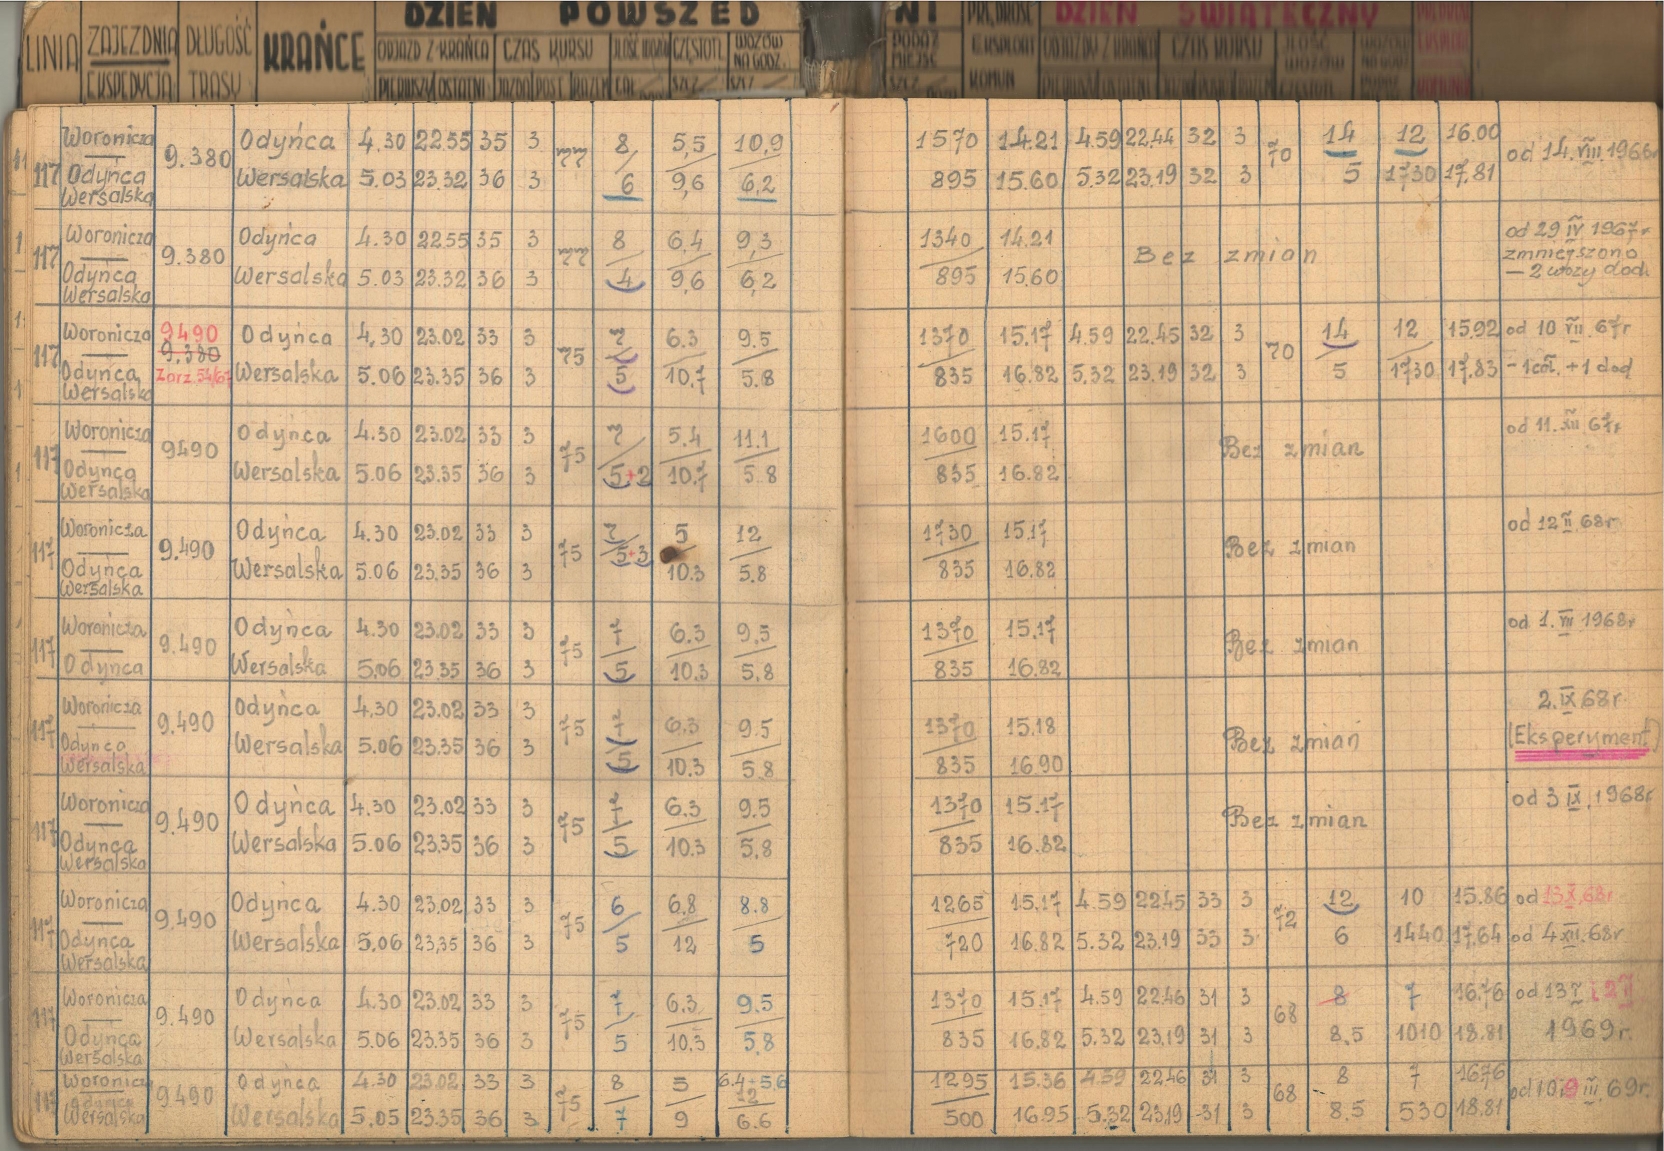 DZIEŃ POWSZED NI DZIEŃ ŚWIĄTECZNY
LINIA ZAJEZDNIA DŁUGOŚĆ KRAŃCE ODJAZD Z KRAŃCA CZAS KURSU CZĘSTOTL. WOZÓW NA GODZ. PODAŻ MIEJSC
EKSPEDYCJA TRASY PIERWSZY OSTATNI JAZDA POST. RAZEM
Woronicza Odyńca 4.30 22.55 35 3 8 5,5 10,9 1570 14.21 4.59 22.44 32 3 14 12 16.00
117 9.380 77 70 od 14.VIII.1966r
Odyńca Wersalska 5.03 23.32 36 3 6 9,6 6,2 895 15.60 5.32 23.19 32 3 5 1730 17.81
Wersalska
Woronicza Odyńca 4.30 22.55 35 3 8 6,4 9,3 1340 14.21 od 29 IV 1967r
117 9.380 77 Bez zmian zmniejszono
Odyńca Wersalska 5.03 23.32 36 3 4 9,6 6,2 895 15.60 – 2 wozy dod.
Wersalska
Woronicza 9490 Odyńca 4.30 23.02 33 3 7 6.3 9.5 1370 15.17 4.59 22.45 32 3 14 12 15.92 od 10 VII. 67r
117 9.380 75 70
Odyńca Zarz.54/67 Wersalska 5.06 23.35 36 3 5 10.7 5.8 835 16.82 5.32 23.19 32 3 5 1730 17.83 – 1 cał. + 1 dod
Wersalska
Woronicza Odyńca 4.30 23.02 33 3 7 5.4 11.1 1600 15.17 od 11.XII.67r
117 9490 75 Bez zmian
Odyńca Wersalska 5.06 23.35 36 3 5+2 10.7 5.8 835 16.82
Wersalska
Woronicza Odyńca 4.30 23.02 33 3 7 5 12 1730 15.17 od 12 II. 68r
117 9.490 75 5+3 Bez zmian
Odyńca Wersalska 5.06 23.35 36 3 10.3 5.8 835 16.82
Wersalska
Woronicza Odyńca 4.30 23.02 33 3 7 6.3 9.5 1370 15.17 od 1. VII 1968r
117 9.490 75 Bez zmian
Odyńca Wersalska 5.06 23.35 36 3 5 10.3 5.8 835 16.82
Woronicza Odyńca 4.30 23.02 33 3 7 6.3 9.5 1370 15.18 2.IX 68r.
117 9.490 75 Bez zmian (Eksperyment)
Odyńca Wersalska 5.06 23.35 36 3 5 10.3 5.8 835 16.90
Wersalska
Woronicza Odyńca 4.30 23.02 33 3 7 6.3 9.5 1370 15.17 od 3 IX. 1968r
117 9.490 75 Bez zmian
Odyńca Wersalska 5.06 23.35 36 3 5 10.3 5.8 835 16.82
Wersalska
Woronicza Odyńca 4.30 23.02 33 3 6 6,8 8.8 1265 15.17 4.59 22.45 33 3 12 10 15.86 od 13 X.68r
117 9.490 75 72
Odyńca Wersalska 5.06 23.35 36 3 5 12 5 720 16.82 5.32 23.19 33 3 6 1440 17.64 od 4 XII. 68r
Wersalska
Woronicza Odyńca 4.30 23.02 33 3 7 6.3 9.5 1370 15.17 4.59 22.46 31 3 8 7 16.76 od 13 I i 2 II
117 9.490 75 68
Odyńca Wersalska 5.06 23.35 36 3 5 10.3 5.8 835 16.82 5.32 23.19 31 3 8.5 1010 18.81 1969r.
Wersalska
Woronicza Odyńca 4.30 23.02 33 3 8 5 6.4÷5,6 1295 15.36 4.59 22.46 31 3 8 7 16.76
117 Odyńca 9490 75 12 68 od 10 i 9 III. 69r.
Wersalska Wersalska 5.05 23.35 36 3 7 9 6.6 500 16.95 5.32 23.19 31 3 8.5 530 18.81